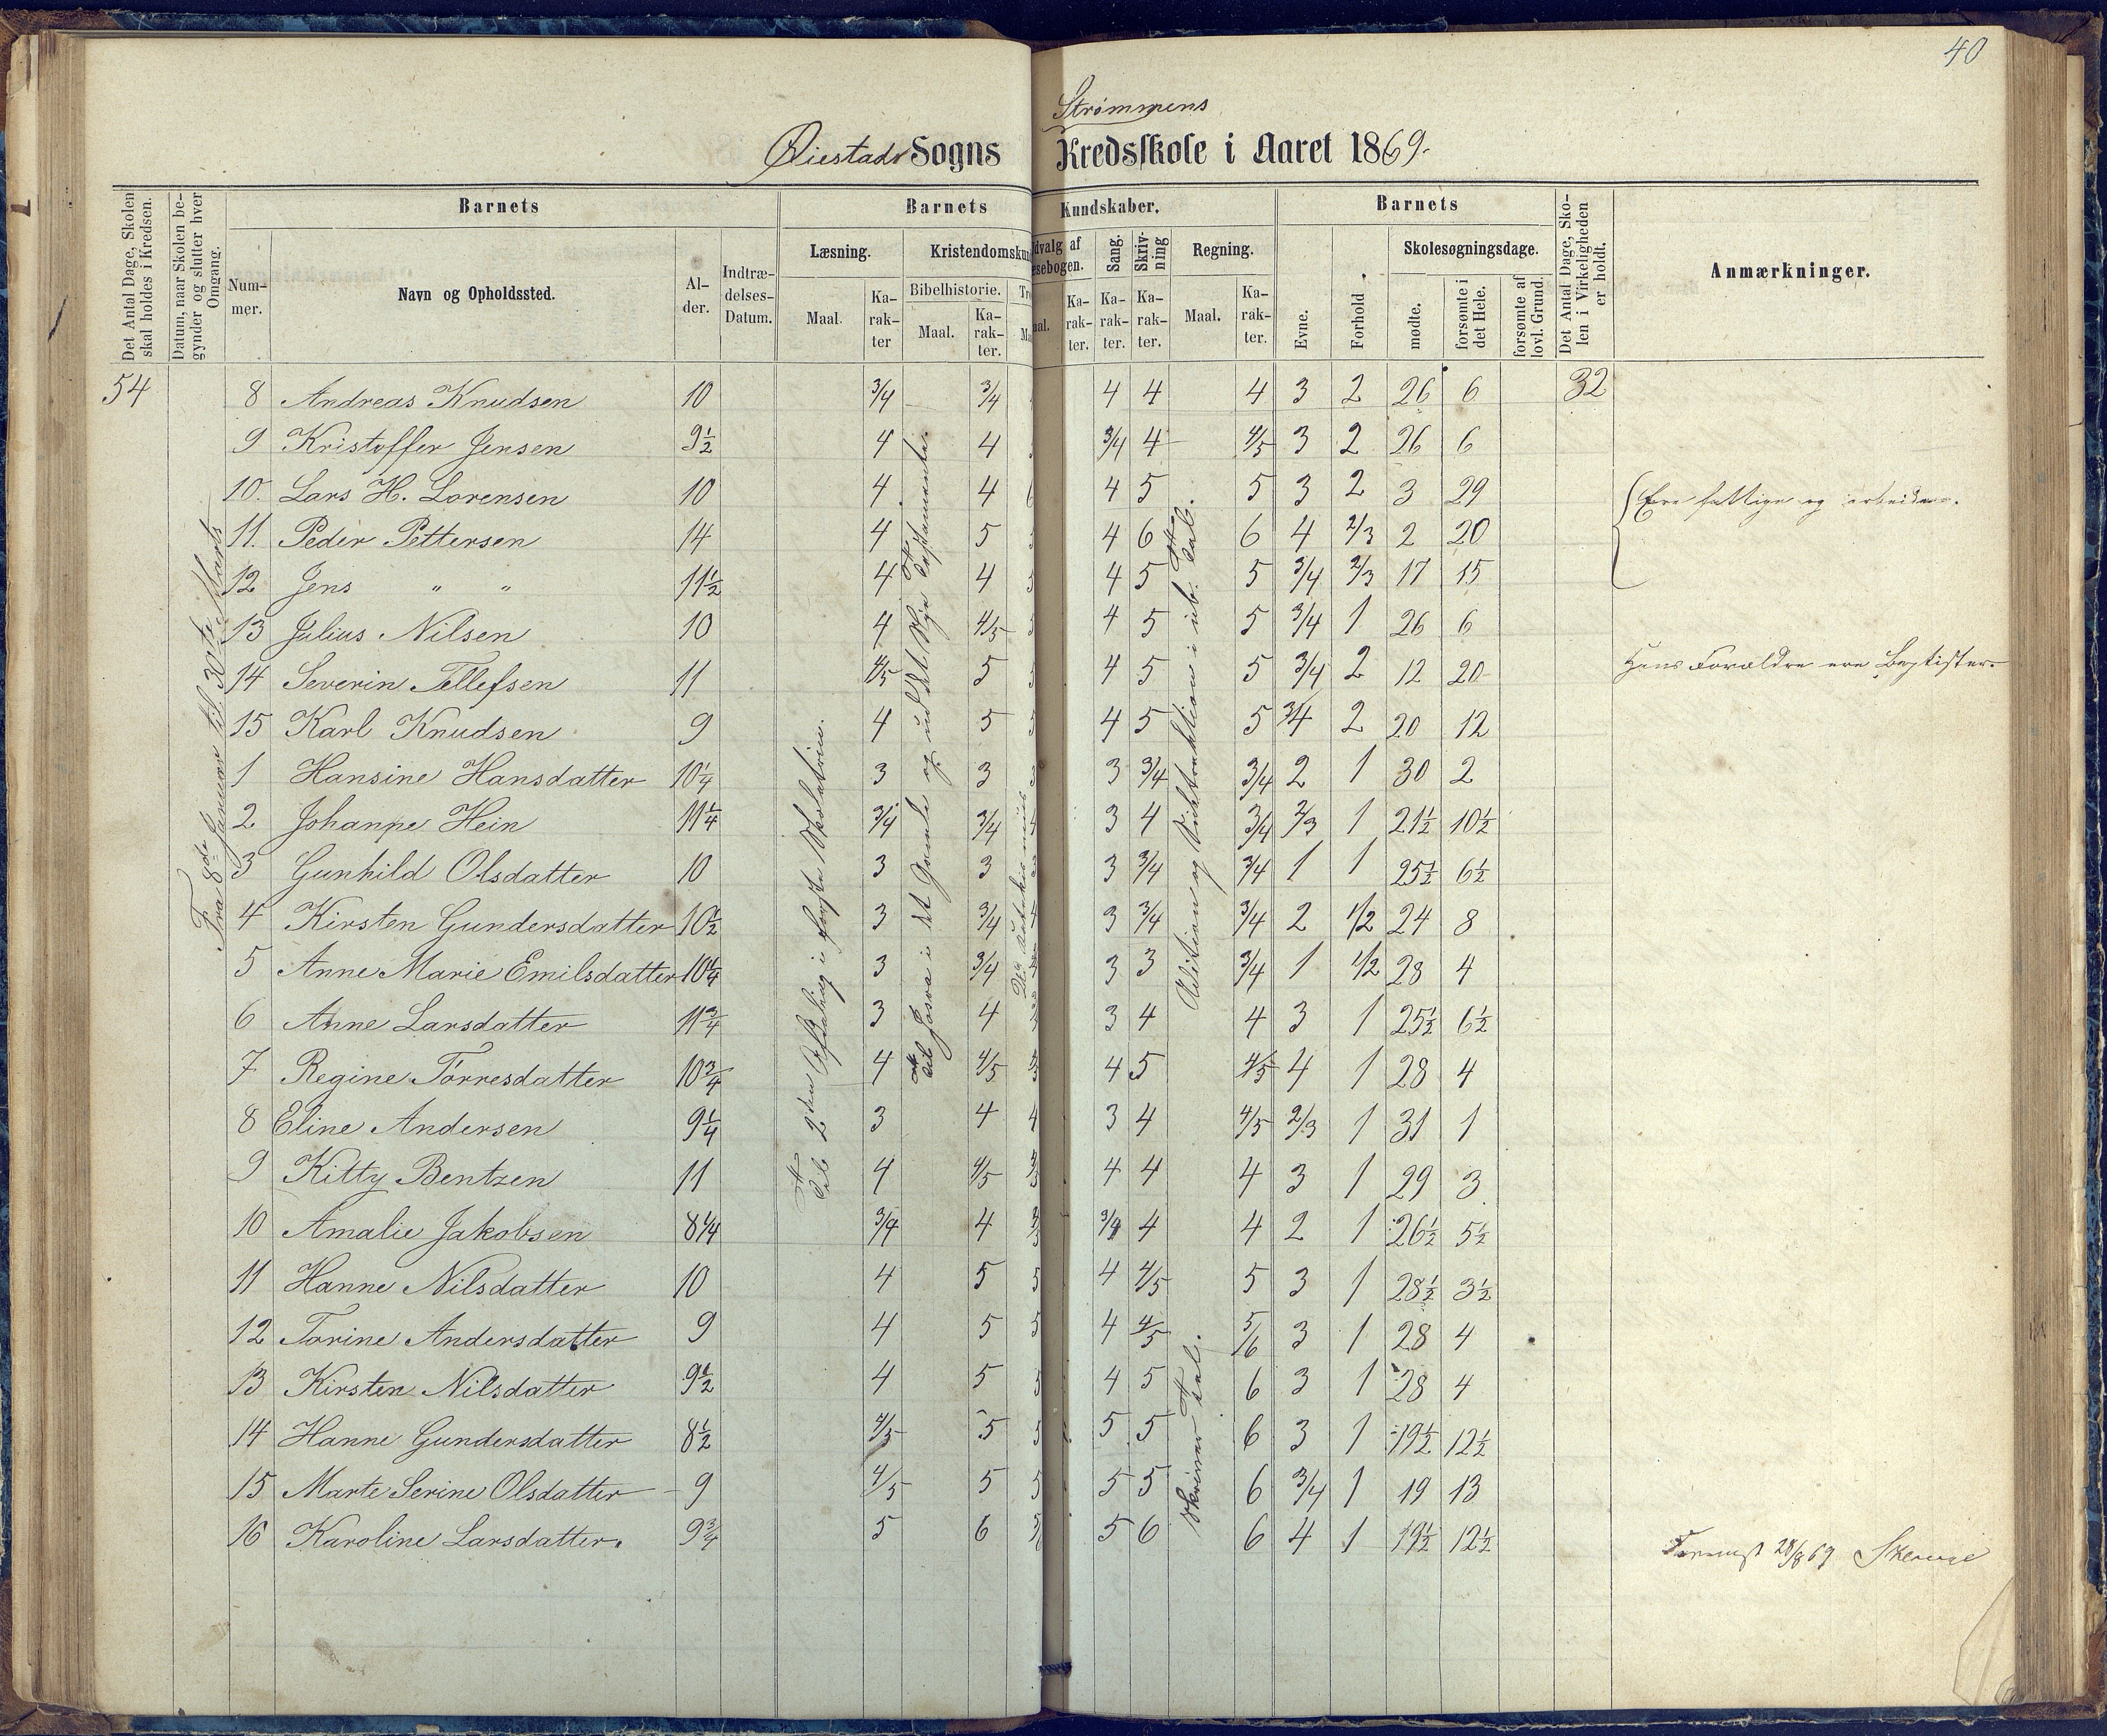 40
Strømmens
Øiestads Sogns Kredsskole i Aaret 1869.
Det Antal Dage, Skolen skal holdes i Kredsen.
Datum, naar Skolen begynder og slutter hver Omgang.
Barnets
Nummer.
Navn og Opholdssted.
Alder.
Indtrædelses-Datum.
Barnets Kundskaber.
Læsning.
Maal.
Karakter
Kristendomskun
Bibelhistorie.
Maal.
Karakter.
Tro
Ma
dvalg af
esebogen.
aal.
Karakter.
Sang.
Karakter.
Skrivning
Karakter.
Regning.
Maal.
Karakter.
Barnets
Evne.
Forhold.
Skolesøgningsdage.
mødte.
forsømte i det Hele.
forsømte af lovl. Grund.
Det Antal Dage, Skolen i Virkeligheden er holdt.
Anmærkninger.
54 8 Andreas Knudsen 10 3/4 3/4 4 4 4 3 2 26 6 32
9 Kristoffer Jensen 9½ 4 4 3/4 4 4/5 3 2 26 6
10. Lars H. Lorensen 10 4 4 4 5 5 3 2 3 29 Ere fattige og arbeide.
11. Peder Pettersen 14 4 5 4 6 6 4 2/3 2 20
12 Jens " " 11½ 4 4 4 5 5 3/4 2/3 17 15
13 Julius Nilsen 10 4 4/5 4 5 5 3/4 1 26 6
14 Severin Tellefsen 11 4/5 5 4 5 5 3/4 2 12 20 Hans Forældre ere Baptister.
15 Karl Knudsen 9 4 5 4 5 5 3/4 2 20 12
1 Hansine Hansdatter 10¼ 3 3 3 3/4 3/4 2 1 30 2
2 Johanne Hein 11¼ 3/4 3/4 3 4 3/4 2/3 1 21½ 10½
3 Gunhild Olsdatter 10 3 3 3 3/4 3/4 1 1 25½ 6½
4 Kirsten Gundersdatter 10½ 3 3/4 3 3/4 3/4 2 1/2 24 8
5 Anne Marie Emilsdatter 10¼ 3 3/4 3 3 3/4 1 1/2 28 4
6 Anne Larsdatter 11¾ 3 4 3 4 4 3 1 25½ 6½
7 Regine Torresdatter 10¾ 4 4/5 4 5 4/5 4 1 28 4
8 Eline Andersen 9¼ 3 4 4 3 4 4/5 2/3 1 31 1
9 Kitty Bentzen 11 4 4/5 4 4 4 3 1 29 3
10 Amalie Jakobsen 8¼ 3/4 4 3/4 4 4 2 1 26½ 5½
11 Hanne Nilsdatter 10 4 5 5 4 4/5 5 3 1 28½ 3½
12 Torine Andersdatter 9 4 5 5 4 4/5 5/6 3 1 28 4
13 Kirsten Nilsdatter 9½ 4 5 4 5 6 3 1 28 4
14 Hanne Gundersdatter 8½ 4/5 5 5 5 6 3 1 19½ 12½
15 Marte Serine Olsdatter 9 4/5 5 5 5 6 3/4 1 19 13
16 Karoline Larsdatter. 9¾ 5 6 5 6 6 4 1 19½ 12½
Fra 8de Januar til 30te Marts
Til 2den Afdeling i første Skoletrin.
Til Josva i det Gamle og ud det Nye Testamente.
Addition og Subtraktion i ub. Tal.
Skriver Tal.
28/8 69